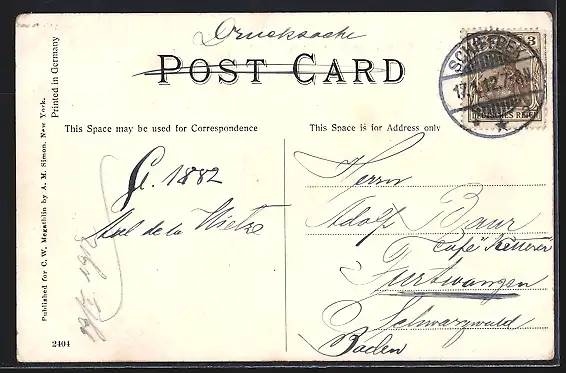 Drucksache
POST CARD
This Space may be used for Correspondence
This Space is for Address only
SCHIFFBEK
17.1.12.7-8N
3
DEUTSCHES REICH
G. 1882
Axel de la Wietze
Herrn
Adolf Baur
Café
Furtwangen
Schwarzwald
Baden
1912
Published for C. W. Megathlin by A. M. Simon, New York.
Printed in Germany
2404